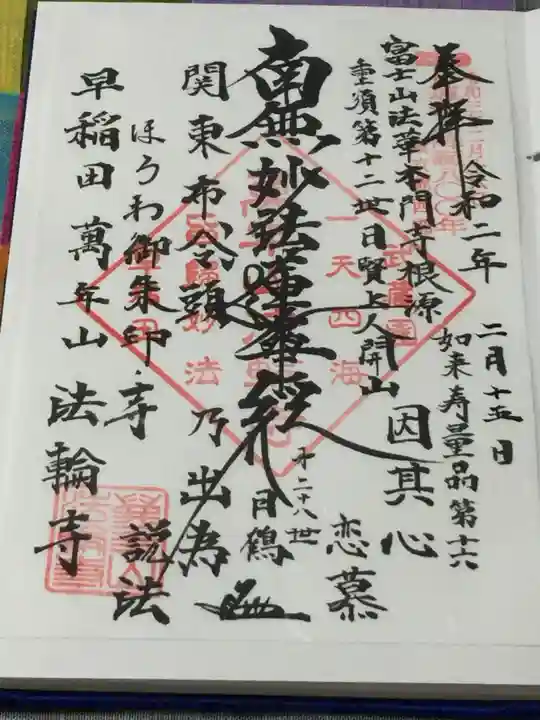 奉拝 令和二年 二月十五日
如来寿量品第十六
富士山法華本門寺根源
重須第十二世日賢上人開山
因其心
恋慕
南無妙法蓮華経
廿二十八世
日鶴
関東布公頭
乃出為
説法
ほうわ御朱印寺
早稲田 萬年山 法輪寺
武蔵国
一天四海
皆帰妙法